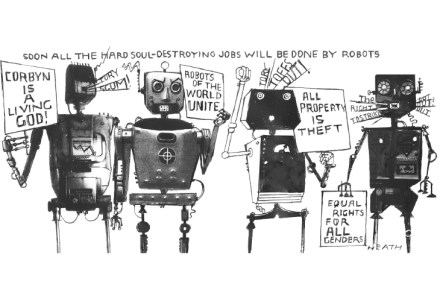 SOON ALL THE HARD SOUL-DESTROYING JOBS WILL BE DONE BY ROBOTS
CORBYN
IS
A
LIVING
GOD!
TORY
SCUM!
ROBOTS
OF THE
WORLD
UNITE
TORY
TOFFS
OUT!
ALL
PROPERTY
IS
THEFT
THE
RIGHT
TO STRIKE
OUT
EQUAL
RIGHTS
FOR
ALL
GENDERS
HEATH